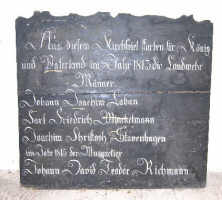 Aus diesem Kirchspiel starben für König
und Vaterland im Jahr 1813 die Landwehr
Männer
Johann Joachim Laban
Carl Friedrich
Joachim Christoph Stavenhagen
im Jahr 1815 der Musquetier
Johann David Teodor Richmann